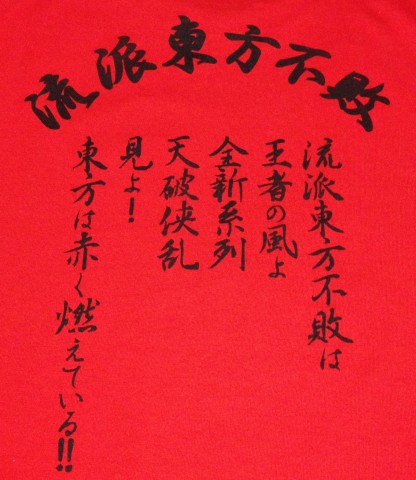 流派東方不敗
流派東方不敗は
王者の風よ
全新系列
天破侠乱
見よ！
東方は赤く燃えている!!